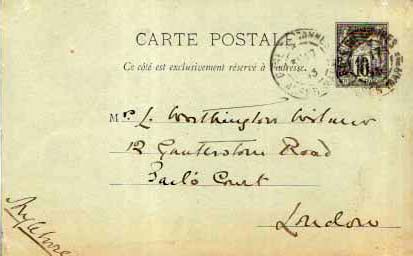 CARTE POSTALE
Ce côté est exclusivement réservé à l'adresse.
10
Mr. L. Worthington Wilmer
12 Gunterstone Road
Earl's Court
London
Angleterre